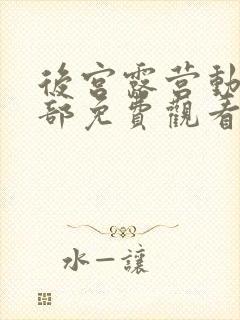 後宮露营動
部免費觀看
水—讓